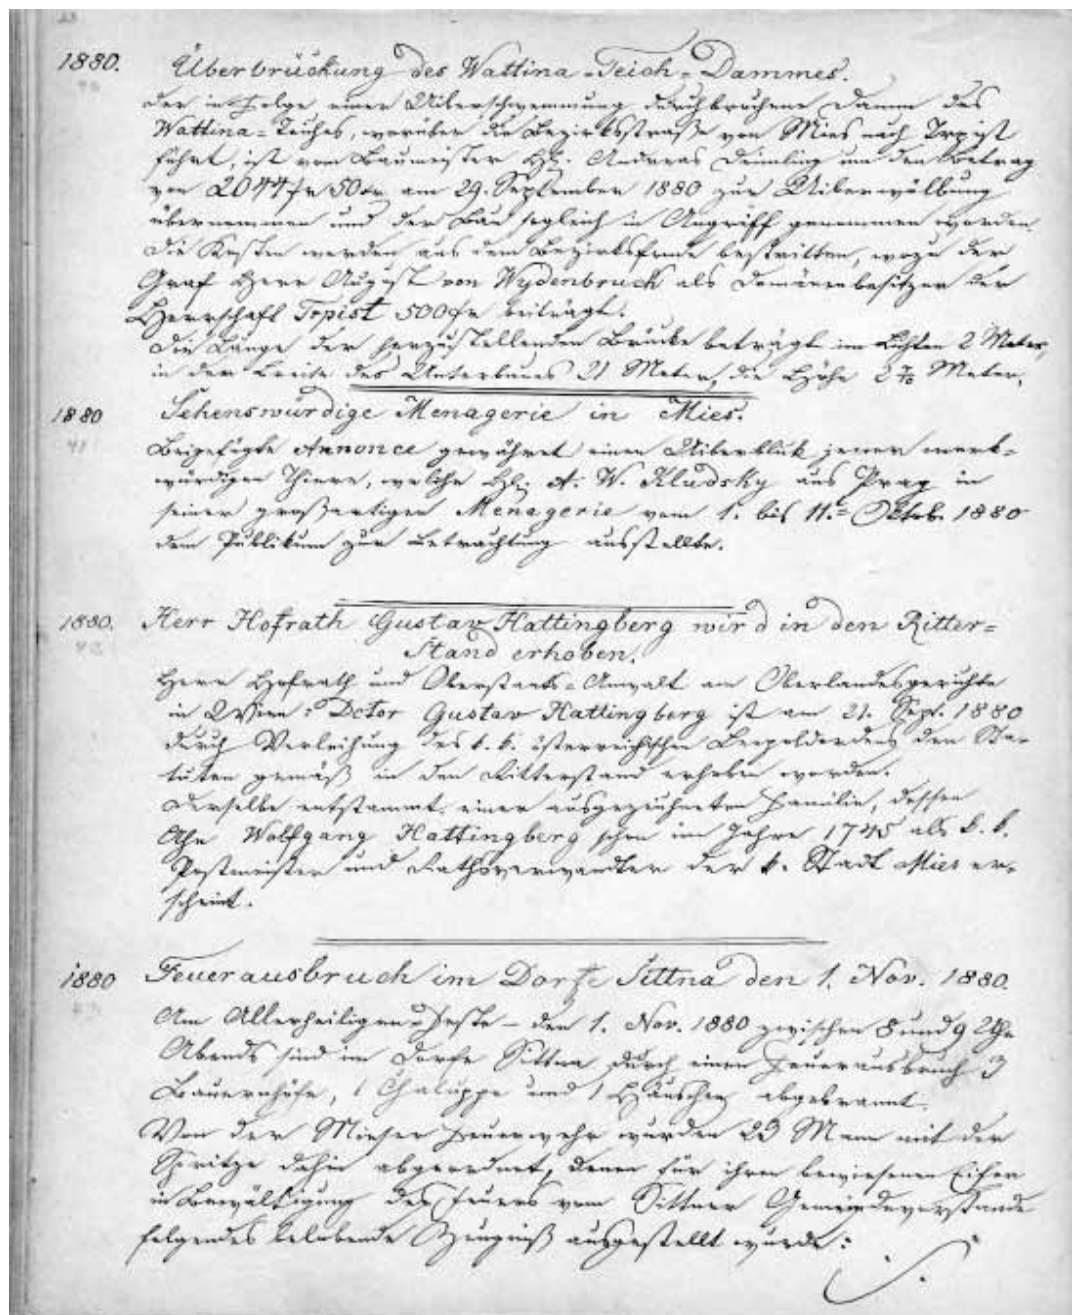 1880. Überbrückung des Wattina-Teich-Dammes.
Der in Folge einer Uiberschwemmung durchbrochene Damm des
Wattina-Teiches, worüber die Bezirksstraße von Mies nach Trpist
führt, ist vom Baumeister H. Andreas Deimling um den Betrag
von 2044 fr 50 xr am 29. September 1880 zur Uiberwölbung
übernommen und der Bau sogleich in Angriff genommen worden.
Die Kosten werden aus dem Bezirksfonde bestritten, wozu der
Graf Herr August von Wydenbruck als Domänenbesitzer der
Herrschaft Trpist 500 fr beiträgt.
Die Länge der herzustellenden Brücke beträgt im Lichten 2 Meter,
in der Breite des Unterbaues 21 Meter, die Höhe Meter.
1880 Sehenswürdige Menagerie in Mies.
41
Beigefügte Annonce gewähret einen Uiberblick jener merk-
würdigen Thiere, welche H. A. W. Kludsky aus Prag in
seiner großartigen Menagerie vom 1. bis 11. Oktob. 1880
dem Publikum zur Betrachtung ausstellte.
1880. Herr Hofrath Gustav Hattingberg wird in den Ritter-
stand erhoben.
Herr Hofrath und Oberstaats-Anwalt am Oberlandesgerichte
in Wien: Dctor Gustav Hattingberg ist am 21. Sept. 1880
durch Verleihung des k. k. österreichischen Leopoldordens den Sta-
tuten gemäß in den Ritterstand erhoben worden.
Derselbe entstammt einer ausgezeichneten Familie, dessen
Ahn Wolfgang Hattingberg schon im Jahre 1745 als k. k.
Postmeister und Rathsverwandter der k. Stadt Mies er-
scheint.
1880 Feuerausbruch im Dorfe Sittna den 1. Nov. 1880.
Am Allerheiligen-Feste – den 1. Nov. 1880 zwischen 8 und 9 Uhr
Abends sind im Dorfe Sittna durch einen Feuerausbruch 3
Bauernhöfe, 1 Chaluppe und 1 Häuschen abgebrannt.
Von der Mieser Feuerwehr wurden 23 Mann mit der
Spritze dahin abgeordnet, denen für ihren bewiesenen Eifer
in Bewältigung des Feuers vom Sittner Gemeindevorstande
folgendes belobende Zeugniß ausgestellt wurde: